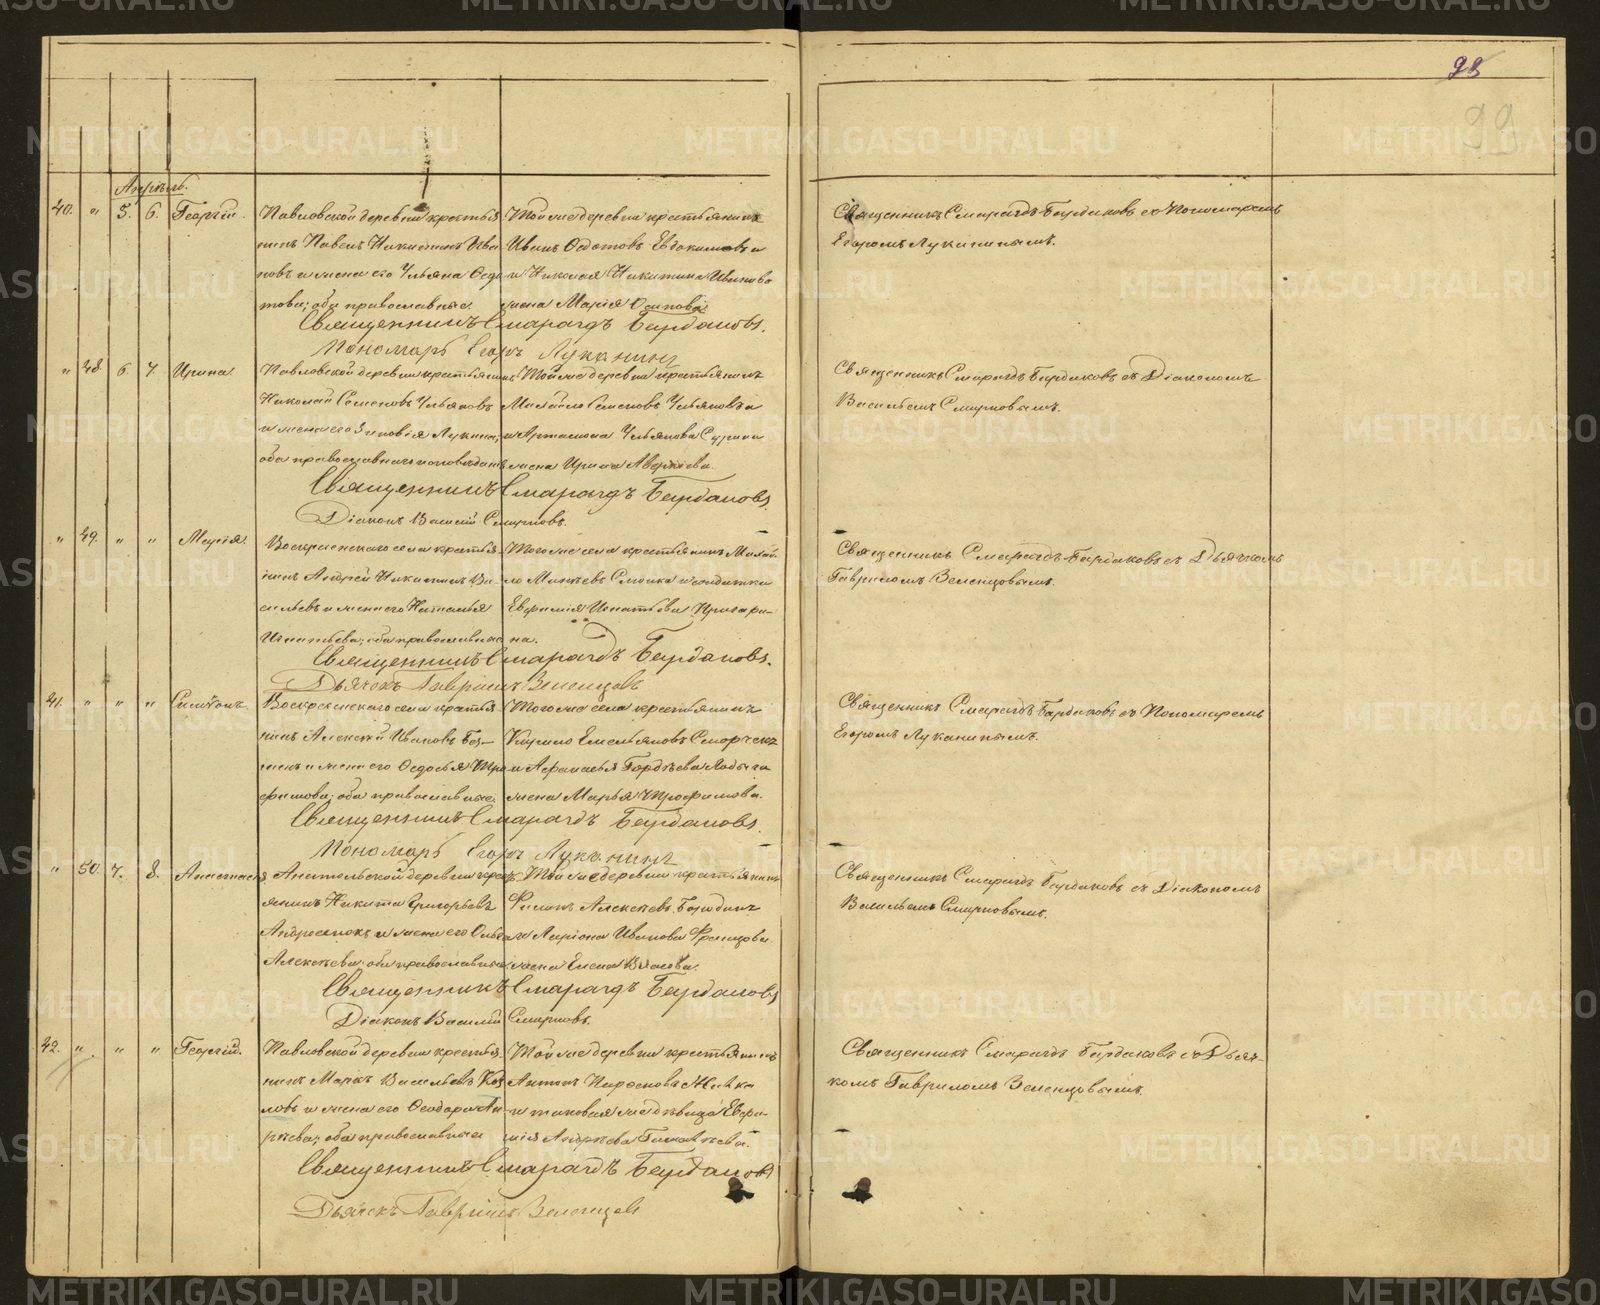 98
99
Апрѣль.
40. " 5. 6. Георгій.
Павловской деревни крестья-
нинъ Павелъ Никитинъ Ива-
новъ и жена его Ульяна Ѳедо-
това; оба православные.
Той же деревни крестьянинъ
Иванъ Ѳедотовъ Евдокимовъ и
и Николая Никитина Иванова
жена Марія Осипова.
Священникъ Смарагдъ Бардаковъ съ Пономаремъ
Егоромъ Луканинымъ.
Священникъ Смарагдъ Бардаковъ.
Пономарь Егоръ Луканинъ
" 48. 6. 7. Ирина.
Павловской деревни крестьянинъ
Николай Семеновъ Ульяновъ
и жена его Зиновія Лукина;
оба православнаго исповѣданія
Той же деревни крестьянинъ
Михайло Семеновъ Ульяновъ и
и Артамона Ульянова
жена Ирина Аверкіева.
Священникъ Смарагдъ Бардаковъ съ Діакономъ
Васильемъ Смирновымъ.
Священникъ Смарагдъ Бардаковъ.
Діаконъ Василій Смирновъ.
" 49. " " Марія.
Воскресенскаго села крестья-
нинъ Андрей Никитинъ Ва-
сильевъ и жена его Наталья
Игнатьева; оба православные
Того же села крестьянинъ Михай-
ло и солдатка
Евфимія Игнатьева
на.
Священникъ Смарагдъ Бардаковъ съ Дьячкомъ
Гавриломъ Зеленцовымъ.
Священникъ Смарагдъ Бардаковъ.
Дьячокъ Гавріилъ Зеленцовъ
41. " " " Симеонъ.
Воскресенскаго села крестья-
нинъ Алексѣй Ивановъ
и жена его Ѳедосья Тро-
фимова; оба православные.
Того же села крестьянинъ
Кирило Емельяновъ
и Афанасья Гордѣева
жена Марья Трофимова.
Священникъ Смарагдъ Бардаковъ съ Пономаремъ
Егоромъ Луканинымъ.
Священникъ Смарагдъ Бардаковъ.
Пономарь Егоръ Луканинъ
" 50. 7. 8. Анастасія.
Анатольской деревни крес-
янинъ Никита Григорьевъ
и жена его Ольга
Алексѣева; оба православные
Той же деревни крестьянинъ
Филипъ Алексѣевъ
и Ларіона Иванова
жена Елена Власова.
Священникъ Смарагдъ Бардаковъ съ Діакономъ
Васильемъ Смирновымъ.
Священникъ Смарагдъ Бардаковъ
Діаконъ Василій Смирновъ.
42. " " " Георгій.
Павловской деревни крестья-
нинъ Маркъ Васильевъ Коз-
ловъ и жена его Ѳеодора Ан-
рѣева; оба православные
Той же деревни крестьянинъ
Антонъ
и таковая же дѣвица Евфи-
мія Андрѣева
Священникъ Смарагдъ Бардаковъ съ Дьяч-
комъ Гавриломъ Зеленцовымъ.
Священникъ Смарагдъ Бардаковъ
Дьячокъ Гавріилъ Зеленцовъ
METRIKI.GASO-URAL.RU